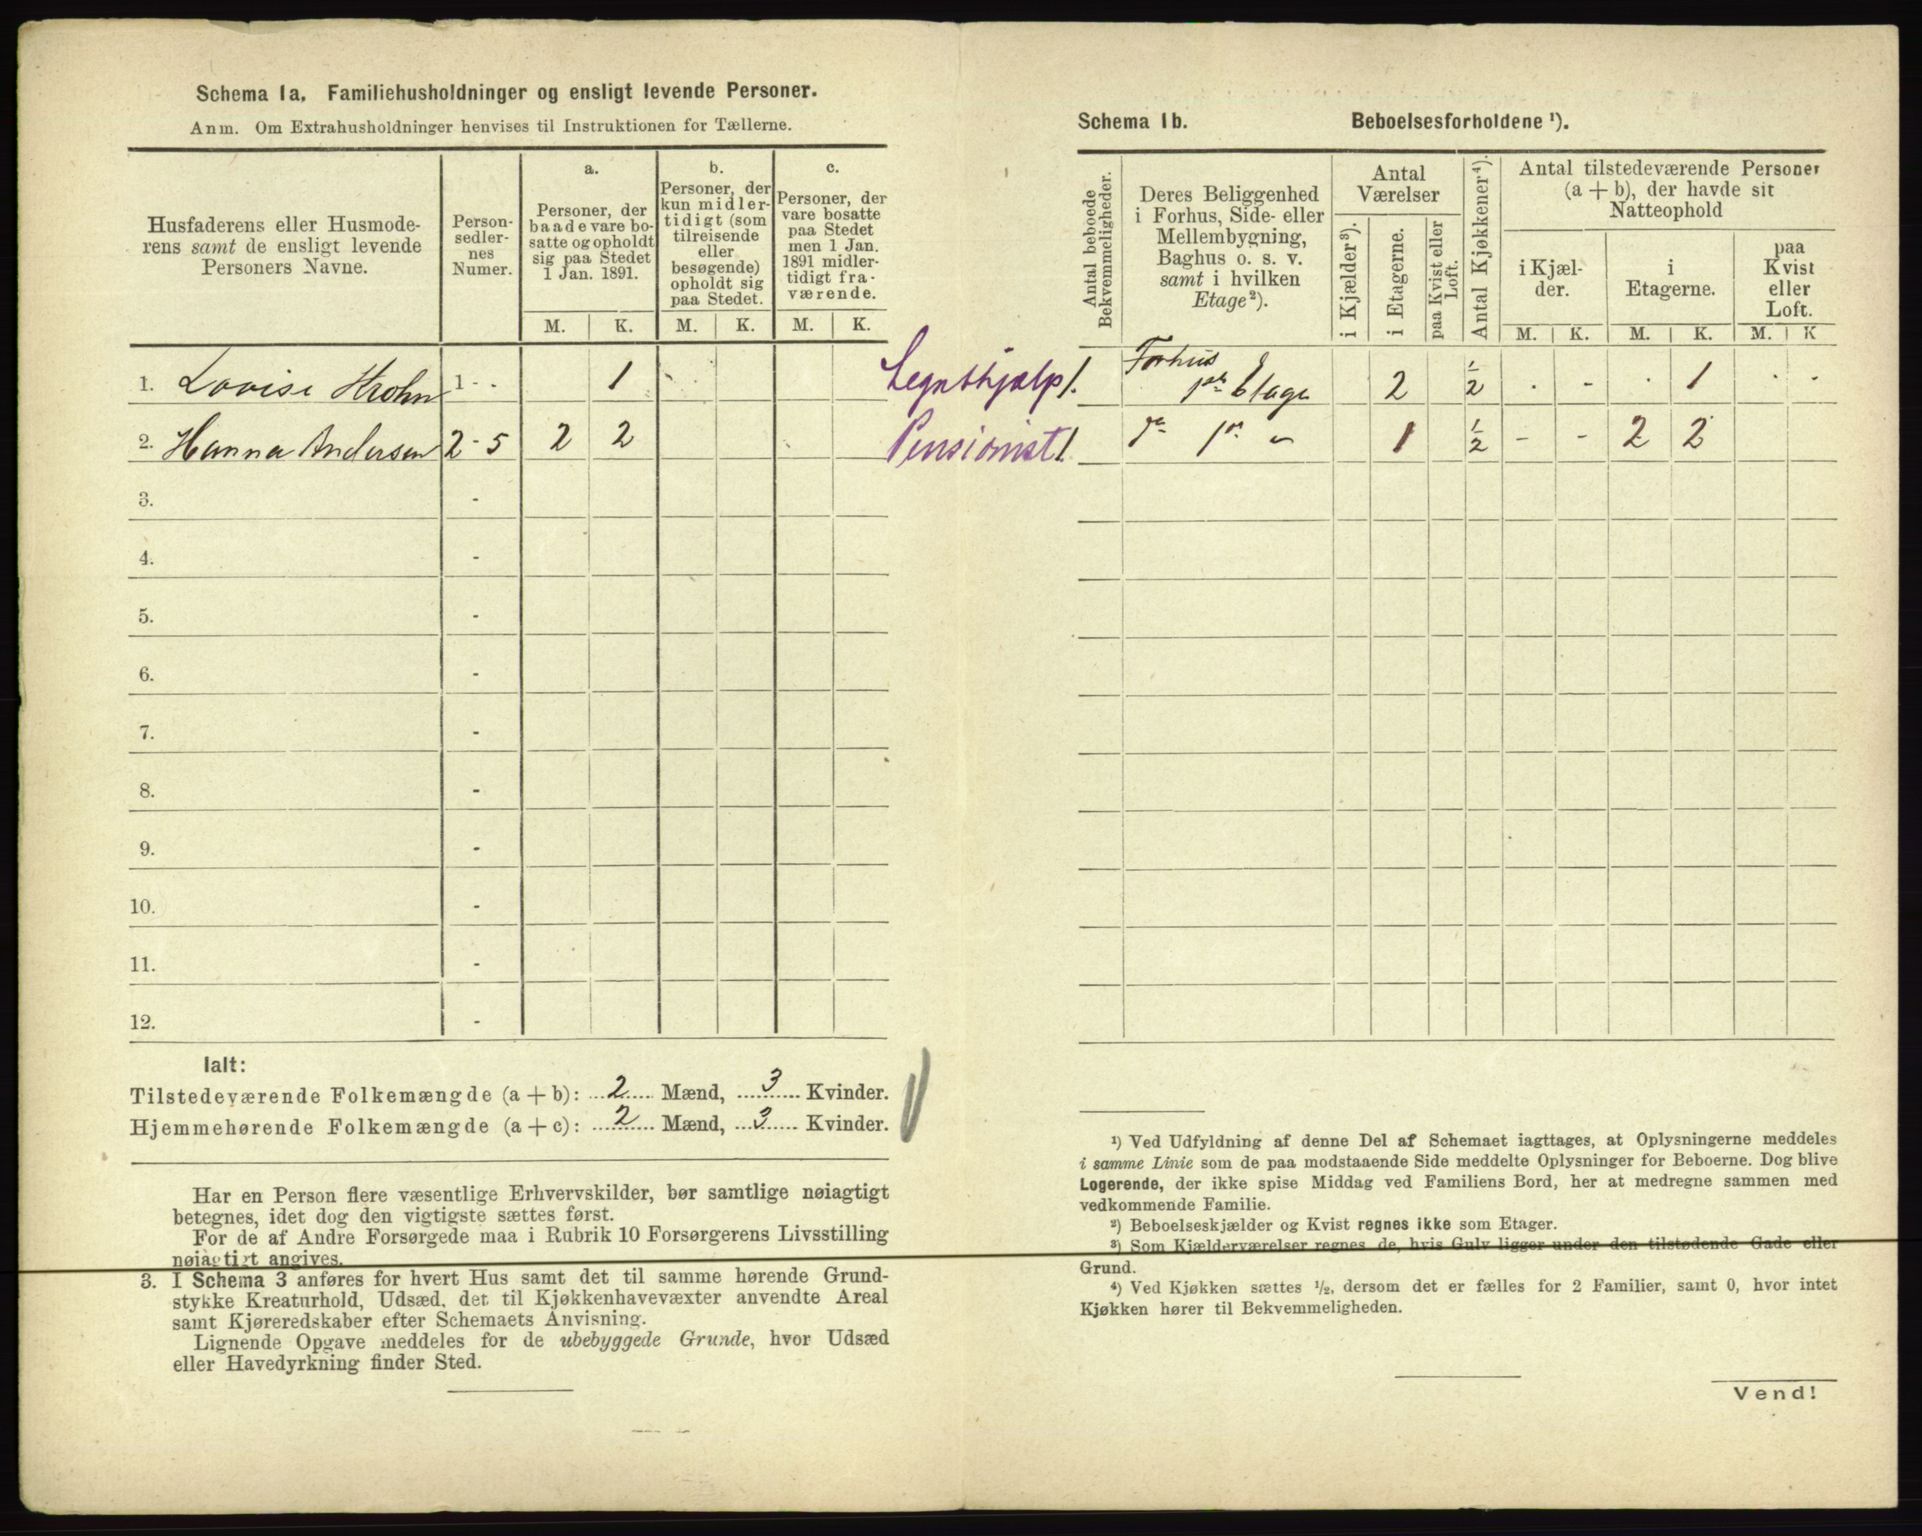 Schema 1a. Familiehusholdninger og ensligt levende Personer.
Anm. Om Extrahusholdninger henvises til Instruktionen for Tællerne.
Husfaderens eller Husmode-
rens samt de ensligt levende
Personers Navne.
Person-
sedler-
nes
Numer.
a.
Personer, der
baade vare bo-
satte og opholdt
sig paa Stedet
1 Jan. 1891.
b.
Personer, der
kun midler-
tidigt (som
tilreisende
eller
besøgende)
opholdt sig
paa Stedet.
c.
Personer, der
vare bosatte
paa Stedet
men 1 Jan.
1891 midler-
tidigt fra-
værende.
M. K. M. K. M. K.
1. Lovise Krohn 1 - 1
2. Hanna Andersen 2 - 5 2 2
3. -
4. -
5. -
6. -
7. -
8. -
9. -
10. -
11. -
12. -
Ialt:
Tilstedeværende Folkemængde (a + b): 2 Mænd, 3 Kvinder.
Hjemmehørende Folkemængde (a + c): 2 Mænd, 3 Kvinder.
Har en Person flere væsentlige Erhvervskilder, bør samtlige nøiagtigt
betegnes, idet dog den vigtigste sættes først.
For de af Andre Forsørgede maa i Rubrik 10 Forsørgerens Livsstilling
nøiagtigt angives.
3. I Schema 3 anføres for hvert Hus samt det til samme hørende Grund-
stykke Kreaturhold, Udsæd, det til Kjøkkenhavevæxter anvendte Areal
samt Kjøreredskaber efter Schemaets Anvisning.
Lignende Opgave meddeles for de ubebyggede Grunde, hvor Udsæd
eller Havedyrkning finder Sted.
Schema 1b. Beboelsesforholdene ¹).
Antal beboede
Bekvemmeligheder.
Deres Beliggenhed
i Forhus, Side- eller
Mellembygning,
Baghus o. s. v.
samt i hvilken
Etage²).
Antal
Værelser
i Kjælder³).
i Etagerne.
paa Kvist eller
Loft.
Antal Kjøkkener⁴).
Antal tilstedeværende Personer
(a + b), der havde sit
Natteophold
i Kjæl-
der.
i
Etagerne.
paa
Kvist
eller
Loft.
M. K. M. K. M. K
Legatshjælp 1. Forhus
1ste Etage 2 ½ . - . 1 . .
Pensionist 1. do 1ste " 1 ½ - - 2 2
¹) Ved Udfyldning af denne Del af Schemaet iagttages, at Oplysningerne meddeles
i samme Linie som de paa modstaaende Side meddelte Oplysninger for Beboerne. Dog blive
Logerende, der ikke spise Middag ved Familiens Bord, her at medregne sammen med
vedkommende Familie.
²) Beboelseskjælder og Kvist regnes ikke som Etager.
³) Som Kjælderværelser regnes de, hvis Gulv ligger under den tilstødende Gade eller
Grund.
⁴) Ved Kjøkken sættes ½, dersom det er fælles for 2 Familier, samt 0, hvor intet
Kjøkken hører til Bekvemmeligheden.
Vend!